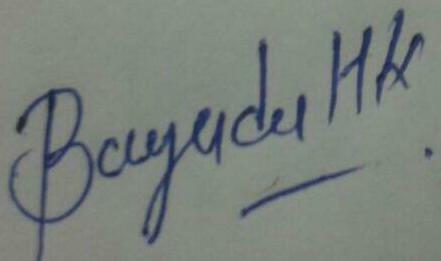 Bayudu HK